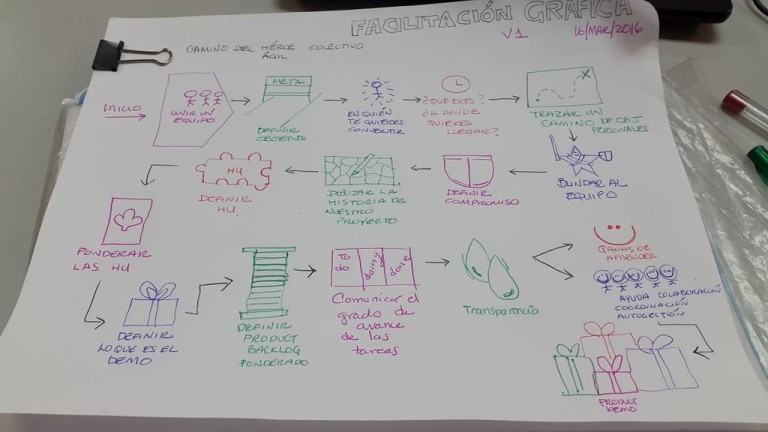 FACILITACIÓN GRÁFICA
V1
16/MAR/2016
CAMINO DEL HÉROE COLECTIVO
ÁGIL
INICIO
UNIR UN
EQUIPO
META
DEFINIR
OBJETIVO
EN QUIÉN
TE QUIERES
CONVERTIR
¿QUE ERES?
¿A DONDE
QUIERES
LLEGAR?
X
TRAZAR UN
CAMINO DE OBJ
PERSONALES
BLINDAR AL
EQUIPO
DEFINIR
COMPROMISO
DIBUJAR LA
HISTORIA DE
NUESTRO
PROYECTO
HU
DEFINIR
HU
PONDERAR
LAS HU
DEFINIR
LO QUE ES EL
DEMO
DEFINIR
PRODUCT
BACKLOG
PONDERADO
To do
doing
done
Comunicar el
grado de
avance de
las
tareas
Transparencia
GANAS DE
APRENDER
AYUDA COLABORACIÓN
COORDINACIÓN
AUTOGESTIÓN
PRODUCT
DEMO